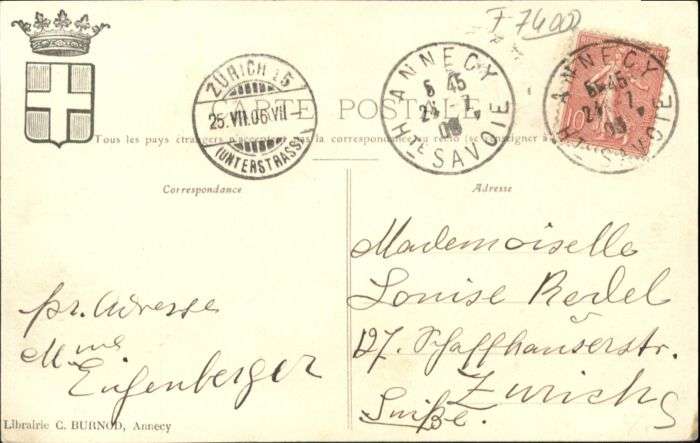 F 74000
ZÜRICH 15
25.VII.06.VII-
(UNTERSTRASS)
ANNECY
6 45
24 7
06
Hte SAVOIE
ANNECY
6 45
24 7
06
Hte SAVOIE
10
CARTE POSTALE
Tous les pays étrangers n'acceptent pas la correspondance au recto (se renseigner à
Correspondance
Adresse
Mademoiselle
Louise Redel
127. Schaffhauserstr.
Zurich
Suiße.
pr. Adresse
Mme
Eugenberger
Librairie C. BURNOD, Annecy